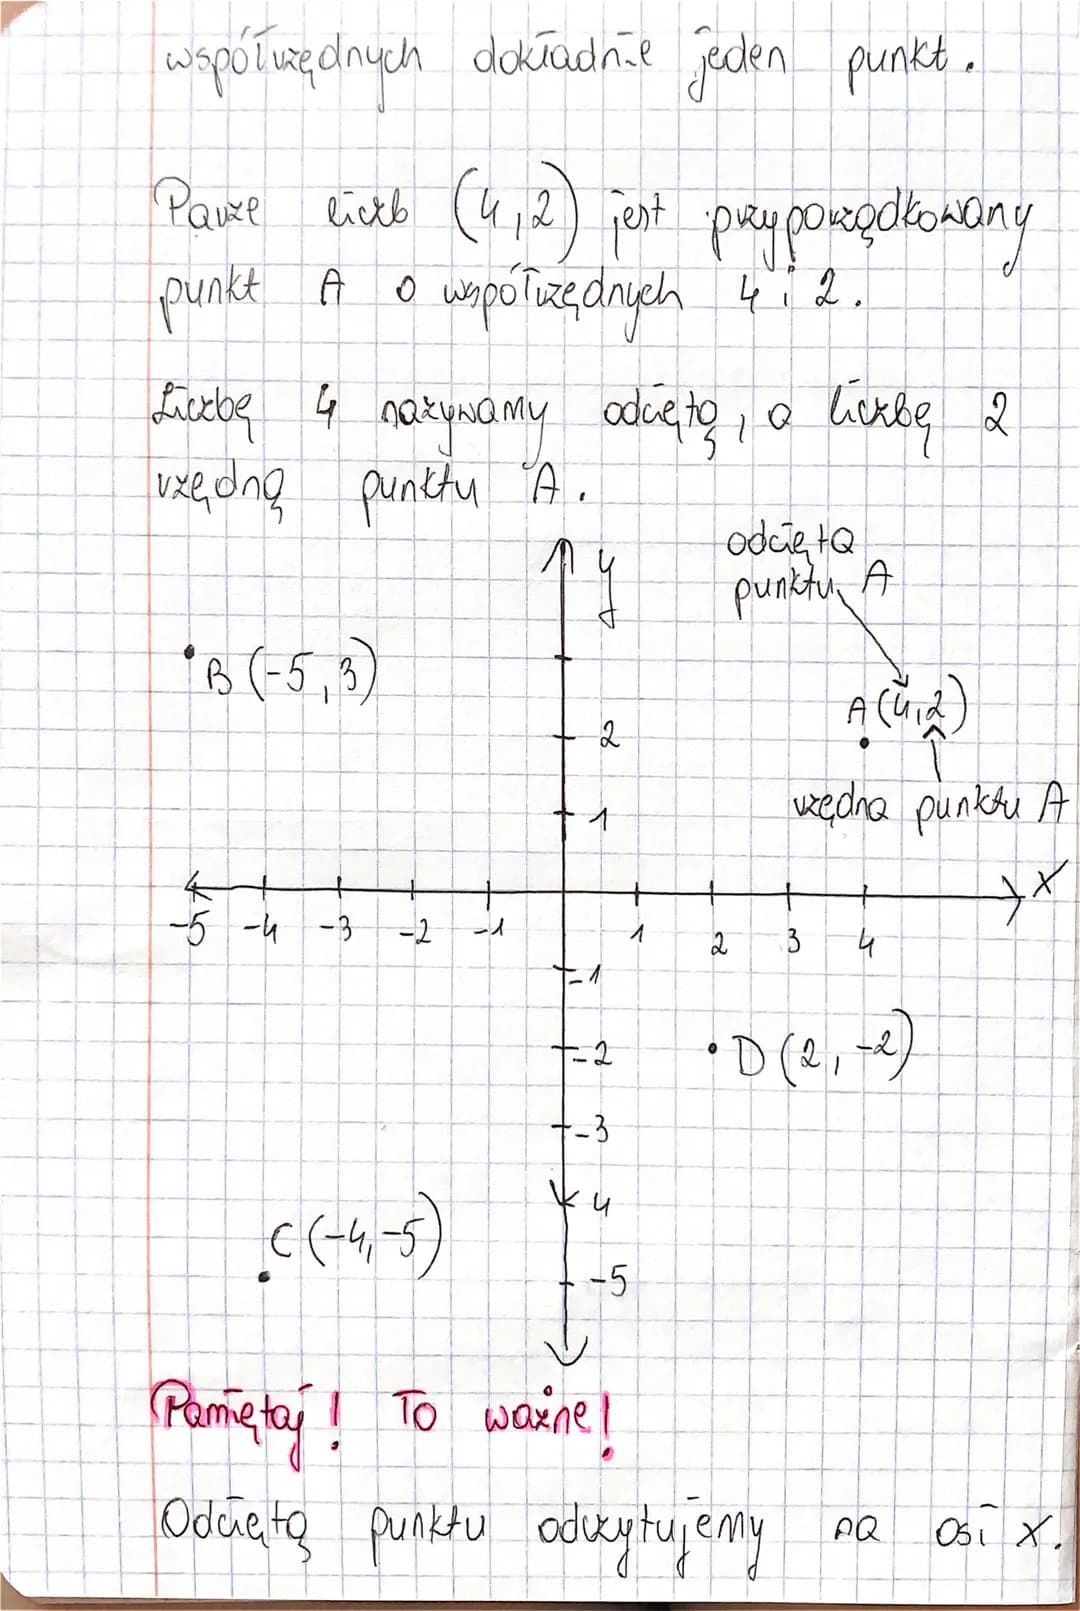 współrzędnych dokładnie jeden punkt.
Parze liczb (4,2) jest przyporządkowany
punkt A o współrzędnych 4 i 2.
Liczbę 4 nazywamy odciętą, a liczbę 2
rzędną punktu A.
odcięta
punktu A
y
B (-5,3)
A (4,2)
2
rzędna punktu A
1
x
-5 -4 -3 -2 -1 1 2 3 4
-1
-2
D (2, -2)
-3
4
C (-4,-5)
-5
Pamiętaj! To ważne!
Odciętą punktu odczytujemy na osi x.